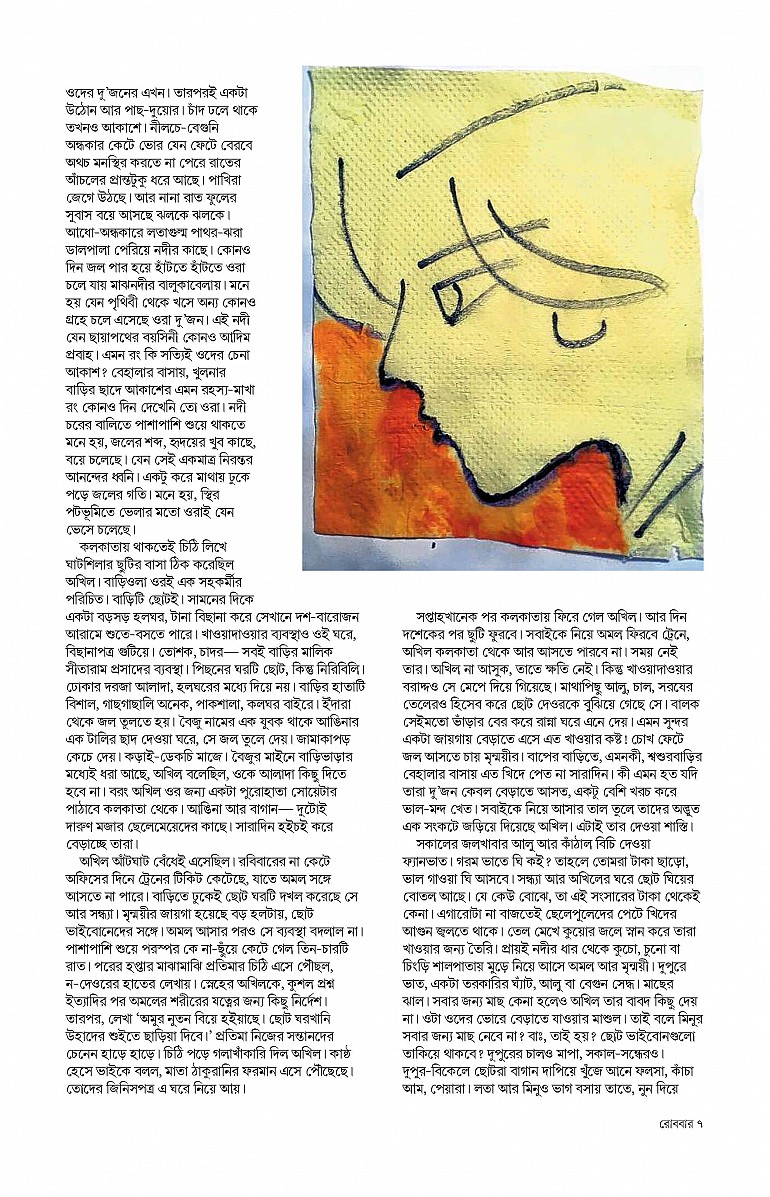 ওদের দু’জনের এখন। তারপরই একটা
উঠোন আর পাছ-দুয়োর। চাঁদ ঢলে থাকে
তখনও আকাশে। নীলচে-বেগুনি
অন্ধকার কেটে ভোর যেন ফেটে বেরবে
অথচ মনস্থির করতে না পেরে রাতের
আঁচলের প্রান্তটুকু ধরে আছে। পাখিরা
জেগে উঠছে। আর নানা রাত ফুলের
সুবাস বয়ে আসছে ঝলকে ঝলকে।
আধো-অন্ধকারে লতাগুল্ম পাথর-ঝরা
ডালপালা পেরিয়ে নদীর কাছে। কোনও
দিন জল পার হয়ে হাঁটতে হাঁটতে ওরা
চলে যায় মাঝনদীর বালুকাবেলায়। মনে
হয় যেন পৃথিবী থেকে খসে অন্য কোনও
গ্রহে চলে এসেছে ওরা দু’জন। এই নদী
যেন ছায়াপথের বয়সিনী কোনও আদিম
প্রবাহ। এমন রং কি সত্যিই ওদের চেনা
আকাশ? বেহালার বাসায়, খুলনার
বাড়ির ছাদে আকাশের এমন রহস্য-মাখা
রং কোনও দিন দেখেনি তো ওরা। নদী
চরের বালিতে পাশাপাশি শুয়ে থাকতে
মনে হয়, জলের শব্দ, হৃদয়ের খুব কাছে,
বয়ে চলেছে। যেন সেই একমাত্র নিরন্তর
আনন্দের ধ্বনি। একটু করে মাথায় ঢুকে
পড়ে জলের গতি। মনে হয়, স্থির
পটভূমিতে ভেলার মতো ওরাই যেন
ভেসে চলেছে।
কলকাতায় থাকতেই চিঠি লিখে
ঘাটশিলার ছুটির বাসা ঠিক করেছিল
অখিল। বাড়িওলা ওরই এক সহকর্মীর
পরিচিত। বাড়িটি ছোটই। সামনের দিকে
একটা বড়সড় হলঘর, টানা বিছানা করে সেখানে দশ-বারোজন
আরামে শুতে-বসতে পারে। খাওয়াদাওয়ার ব্যবস্থাও ওই ঘরে,
বিছানাপত্র গুটিয়ে। তোশক, চাদর— সবই বাড়ির মালিক
সীতারাম প্রসাদের ব্যবস্থা। পিছনের ঘরটি ছোট, কিন্তু নিরিবিলি।
ঢোকার দরজা আলাদা, হলঘরের মধ্যে দিয়ে নয়। বাড়ির হাতাটি
বিশাল, গাছগাছালি অনেক, পাকশালা, কলঘর বাইরে। ইঁদারা
থেকে জল তুলতে হয়। বৈজু নামের এক যুবক থাকে আঙিনার
এক টালির ছাদ দেওয়া ঘরে, সে জল তুলে দেয়। জামাকাপড়
কেচে দেয়। কড়াই-ডেকচি মাজে। বৈজুর মাইনে বাড়িভাড়ার
মধ্যেই ধরা আছে, অখিল বলেছিল, ওকে আলাদা কিছু দিতে
হবে না। বরং অখিল ওর জন্য একটা পুরোহাতা সোয়েটার
পাঠাবে কলকাতা থেকে। আঙিনা আর বাগান— দুটোই
দারুণ মজার ছেলেমেয়েদের কাছে। সারাদিন হইচই করে
বেড়াচ্ছে তারা।
অখিল আঁটঘাট বেঁধেই এসেছিল। রবিবারের না কেটে
অফিসের দিনে ট্রেনের টিকিট কেটেছে, যাতে অমল সঙ্গে
আসতে না পারে। বাড়িতে ঢুকেই ছোট ঘরটি দখল করেছে সে
আর সন্ধ্যা। মৃন্ময়ীর জায়গা হয়েছে বড় হলটায়, ছোট
ভাইবোনেদের সঙ্গে। অমল আসার পরও সে ব্যবস্থা বদলাল না।
পাশাপাশি শুয়ে পরস্পর কে না-ছুঁয়ে কেটে গেল তিন-চারটি
রাত। পরের হপ্তার মাঝামাঝি প্রতিমার চিঠি এসে পৌঁছল,
ন-দেওরের হাতের লেখায়। স্নেহের অখিলকে, কুশল প্রশ্ন
ইত্যাদির পর অমলের শরীরের যত্নের জন্য কিছু নির্দেশ।
তারপর, লেখা ‘অমুর নুতন বিয়ে হইয়াছে। ছোট ঘরখানি
উহাদের শুইতে ছাড়িয়া দিবে।’ প্রতিমা নিজের সন্তানদের
চেনেন হাড়ে হাড়ে। চিঠি পড়ে গলাখাঁকারি দিল অখিল। কাষ্ঠ
হেসে ভাইকে বলল, মাতা ঠাকুরানির ফরমান এসে পৌঁছেছে।
তোদের জিনিসপত্র এ ঘরে নিয়ে আয়।
সপ্তাহখানেক পর কলকাতায় ফিরে গেল অখিল। আর দিন
দশেকের পর ছুটি ফুরবে। সবাইকে নিয়ে অমল ফিরবে ট্রেনে,
অখিল কলকাতা থেকে আর আসতে পারবে না। সময় নেই
তার। অখিল না আসুক, তাতে ক্ষতি নেই। কিন্তু খাওয়াদাওয়ার
বরাদ্দও সে মেপে দিয়ে গিয়েছে। মাথাপিছু আলু, চাল, সরষের
তেলেরও হিসেব করে ছোট দেওরকে বুঝিয়ে গেছে সে। বালক
সেইমতো ভাঁড়ার বের করে রান্না ঘরে এনে দেয়। এমন সুন্দর
একটা জায়গায় বেড়াতে এসে এত খাওয়ার কষ্ট! চোখ ফেটে
জল আসতে চায় মৃন্ময়ীর। বাপের বাড়িতে, এমনকী, শ্বশুরবাড়ির
বেহালার বাসায় এত খিদে পেত না সারাদিন। কী এমন হত যদি
তারা দু’জন কেবল বেড়াতে আসত, একটু বেশি খরচ করে
ভাল-মন্দ খেত। সবাইকে নিয়ে আসার তাল তুলে তাদের অদ্ভুত
এক সংকটে জড়িয়ে দিয়েছে অখিল। এটাই তার দেওয়া শাস্তি।
সকালের জলখাবার আলু আর কাঁঠাল বিচি দেওয়া
ফ্যানভাত। গরম ভাতে ঘি কই? তাহলে তোমরা টাকা ছাড়ো,
ভাল গাওয়া ঘি আসবে। সন্ধ্যা আর অখিলের ঘরে ছোট ঘিয়ের
বোতল আছে। যে কেউ বোঝে, তা এই সংসারের টাকা থেকেই
কেনা। এগারোটা না বাজতেই ছেলেপুলেদের পেটে খিদের
আগুন জ্বলতে থাকে। তেল মেখে কুয়োর জলে স্নান করে তারা
খাওয়ার জন্য তৈরি। প্রায়ই নদীর ধার থেকে কুচো, চুনো বা
চিংড়ি শালপাতায় মুড়ে নিয়ে আসে অমল আর মৃন্ময়ী। দুপুরে
ভাত, একটা তরকারির ঘ্যাঁট, আলু বা বেগুন সেদ্ধ। মাছের
ঝাল। সবার জন্য মাছ কেনা হলেও অখিল তার বাবদ কিছু দেয়
না। ওটা ওদের ভোরে বেড়াতে যাওয়ার মাশুল। তাই বলে মিনুর
সবার জন্য মাছ নেবে না? বাঃ, তাই হয়? ছোট ভাইবোনগুলো
তাকিয়ে থাকবে? দুপুরের চালও মাপা, সকাল-সন্ধেরও।
দুপুর-বিকেলে ছোটরা বাগান দাপিয়ে খুঁজে আনে ফলসা, কাঁচা
আম, পেয়ারা। লতা আর মিনুও ভাগ বসায় তাতে, নুন দিয়ে
রোববার ৭